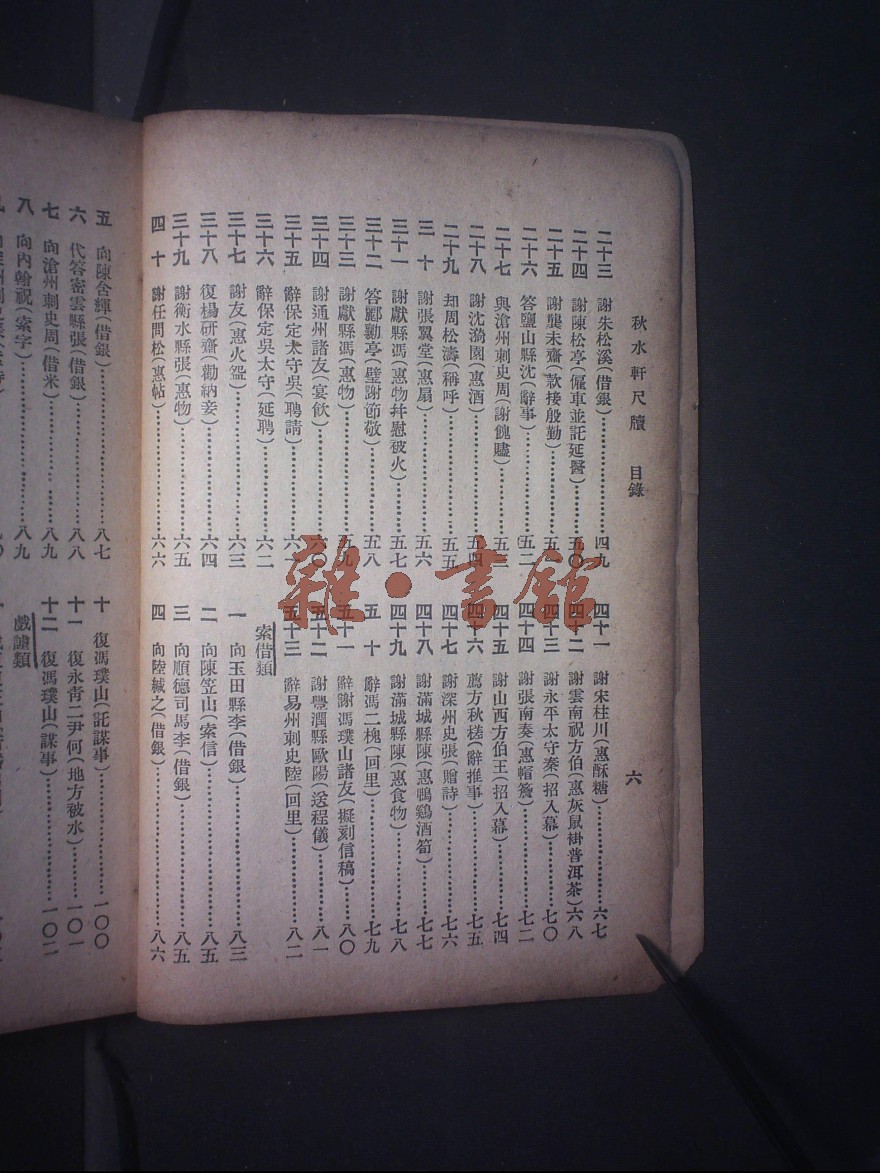 秋水軒尺牘　目錄　六
二十三　謝朱松溪(借銀)……四九
二十四　謝陳松亭(僱車並託延醫)……五〇
二十五　謝龔未齋(款接殷勤)……五一
二十六　答鹽山縣沈(辭事)……五二
二十七　與滄州刺史周(謝餽贐)……五三
二十八　謝沈漪園(惠酒)……五四
二十九　却周松濤(稱呼)……五五
三十　謝張翼堂(惠扇)……五六
三十一　謝獻縣馮(惠物幷慰被火)……五七
三十二　答酈勷亭(璧謝節敬)……五八
三十三　謝獻縣馮(惠物)……五九
三十四　謝通州諸友(宴飲)……六〇
三十五　辭保定太守吳(聘請)……六一
三十六　辭保定吳太守(延聘)……六二
三十七　謝友(惠火盌)……六三
三十八　復楊研齋(勸納妾)……六四
三十九　謝衡水縣張(惠物)……六五
四十　謝任問松(惠帖)……六六
四十一　謝宋桂川(惠酥糖)……六七
四十二　謝雲南祝方伯(惠灰鼠褂普洱茶)六八
四十三　謝永平太守秦(招入幕)……七〇
四十四　謝張南奏(惠帽簷)……七二
四十五　謝山西方伯王(招入幕)……七四
四十六　薦方秋槎(辭推事)……七五
四十七　謝深州史張(贈詩)……七六
四十八　謝滿城縣陳(惠鴨鷄酒筍)……七七
四十九　謝滿城縣陳(惠食物)……七八
五十　辭馮二槐(回里)……七九
五十一　辭謝馮璞山諸友(擬刻信稿)……八〇
五十二　謝豐潤縣歐陽(送程儀)……八一
五十三　辭易州刺史陸(回里)……八二
索借類
一　向玉田縣李(借銀)……八三
二　向陳笠山(索信)……八五
三　向順德司馬李(借銀)……八五
四　向陸緘之(借銀)……八六
五　向陳舍輝(借銀)……八七
六　代答密雲縣張(借銀)……八八
七　向滄州刺史周(借米)……八九
八　向內翰祝(索字)……八九
十　復馮璞山(託謀事)……一〇〇
十一　復永靑二尹何(地方被水)……一〇一
十二　復馮璞山(謀事)……一〇二
戲謔類
雜·書館